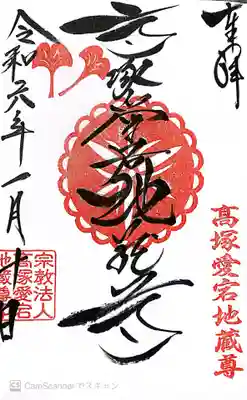 奉拝
高塚愛宕地蔵尊
高塚愛宕地蔵尊
令和六年一月十日
宗教法人
高塚愛宕
地蔵尊
CamScanner でスキャン